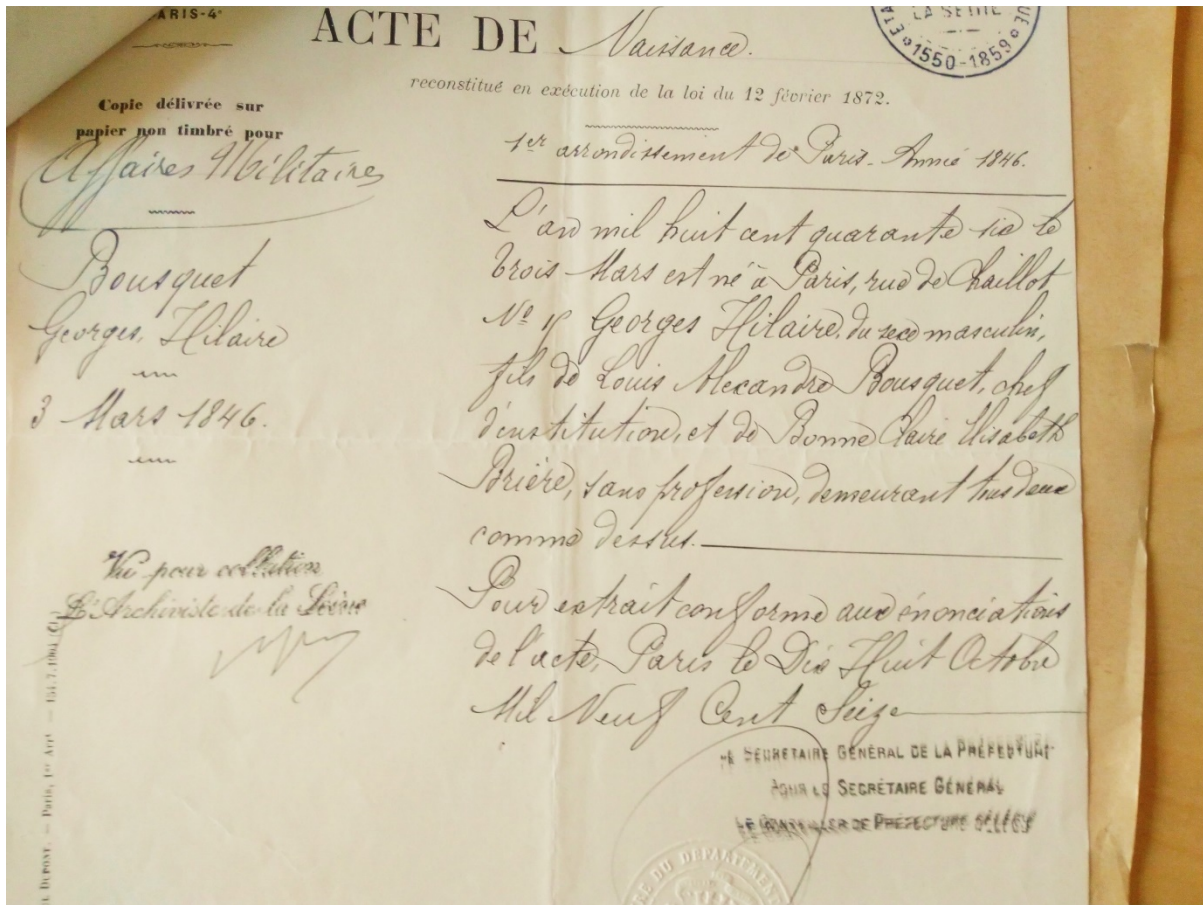 PARIS-4e
ACTE DE Naissance.
reconstitué en exécution de la loi du 12 février 1872.
LA SEINE
1550-1859
Copie délivrée sur
papier non timbré pour
Affaires Militaires
Bousquet
Georges, Hilaire
3 Mars 1846.
Vu pour collation
L'Archiviste de la Seine
1er arrondissement de Paris - Année 1846.
L'an mil huit cent quarante six le
trois Mars est né à Paris, rue de Chaillot
No Georges Hilaire, du sexe masculin,
fils de Louis Alexandre Bousquet, chef
d'institution, et de Bonne Claire Elisabeth
Brière, sans profession, demeurant tous deux
comme dessus.
Pour extrait conforme aux énonciations
de l'acte, Paris le Dix Huit Octobre
Mil Neuf Cent Seize
LE SECRÉTAIRE GÉNÉRAL DE LA PRÉFECTURE
POUR LE SECRÉTAIRE GÉNÉRAL
LE CONSEILLER DE PRÉFECTURE DÉLÉGUÉ
DU DÉPARTEMENT
DUPONT. — Paris, 1er Arrt — 154.7.1904